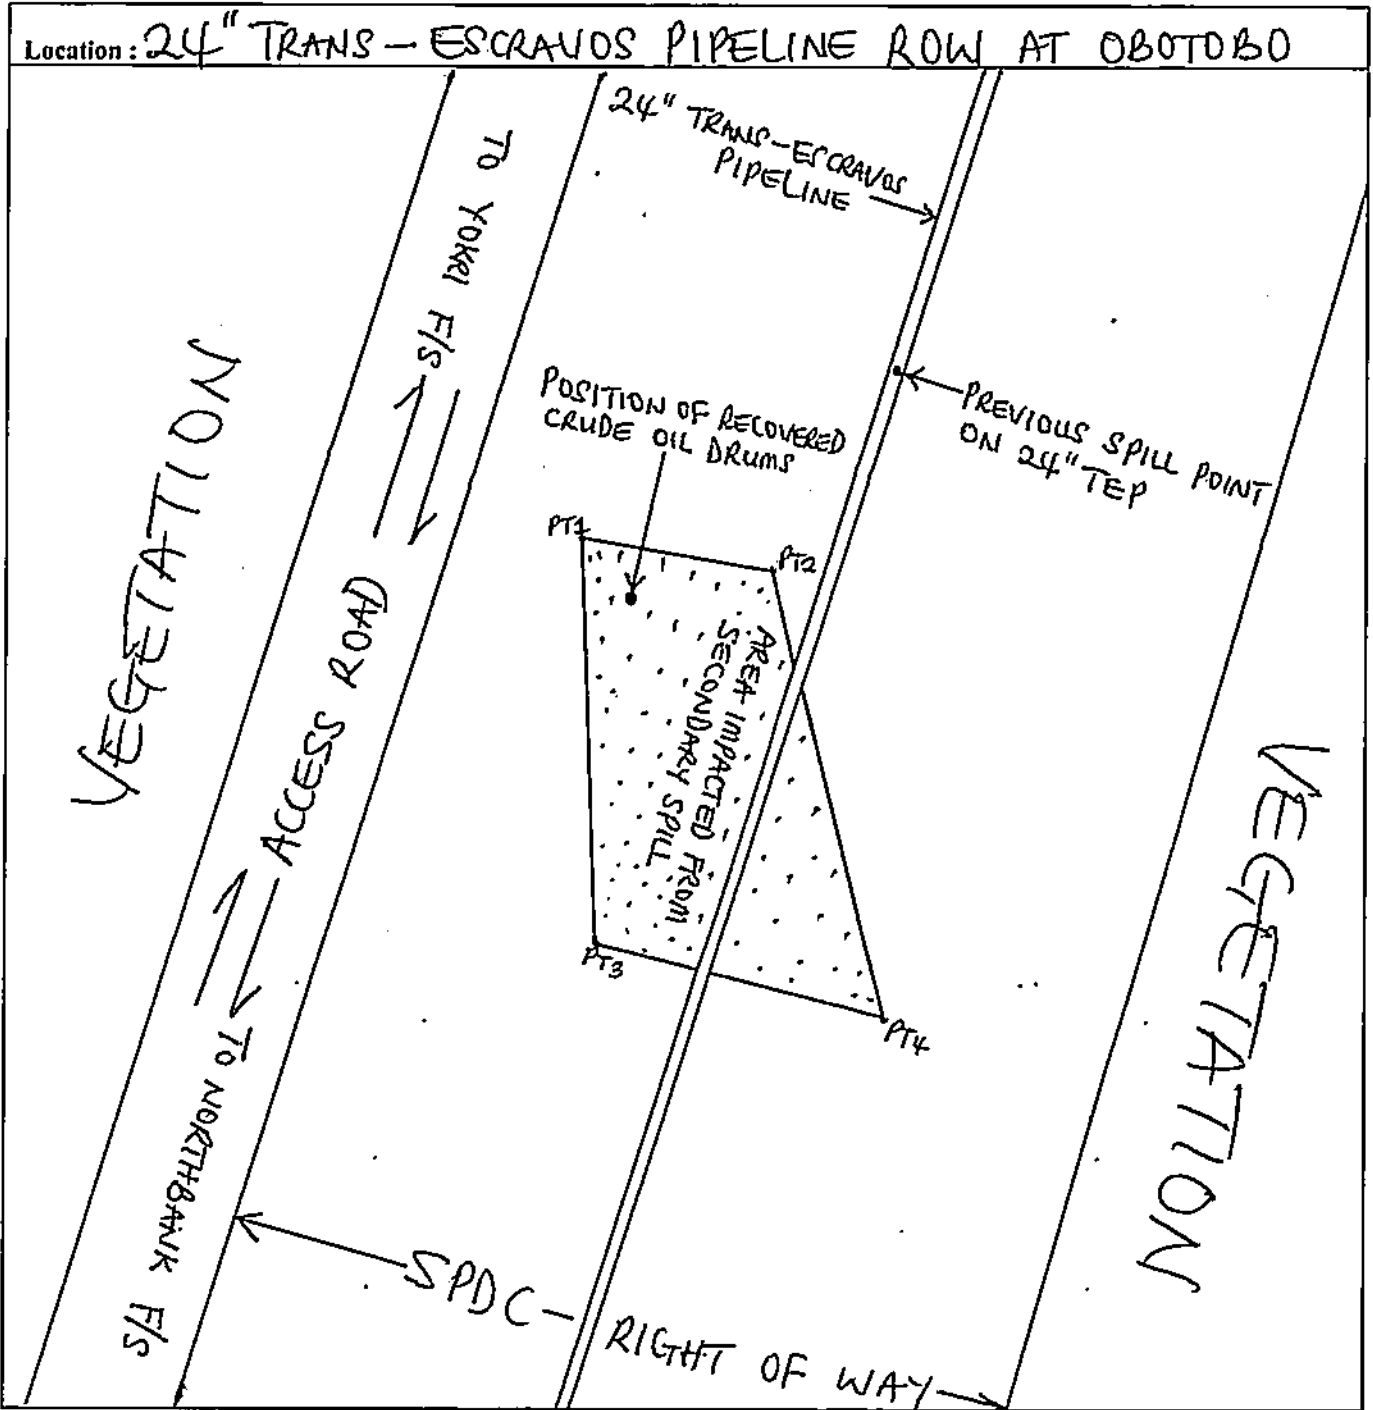 Location : 24" TRANS - ESCRAVOS PIPELINE ROW AT OBOTOBO
24" TRANS-ESCRAVOS
PIPELINE
TO YOKRI F/S
VEGETATION
POSITION OF RECOVERED
CRUDE OIL DRUMS
PREVIOUS SPILL POINT
ON 24" TEP
PT1
PT2
ACCESS ROAD
AREA IMPACTED FROM
SECONDARY SPILL
VEGETATION
PT3
PT4
TO NORTHBANK F/S
SPDC - RIGHT OF WAY